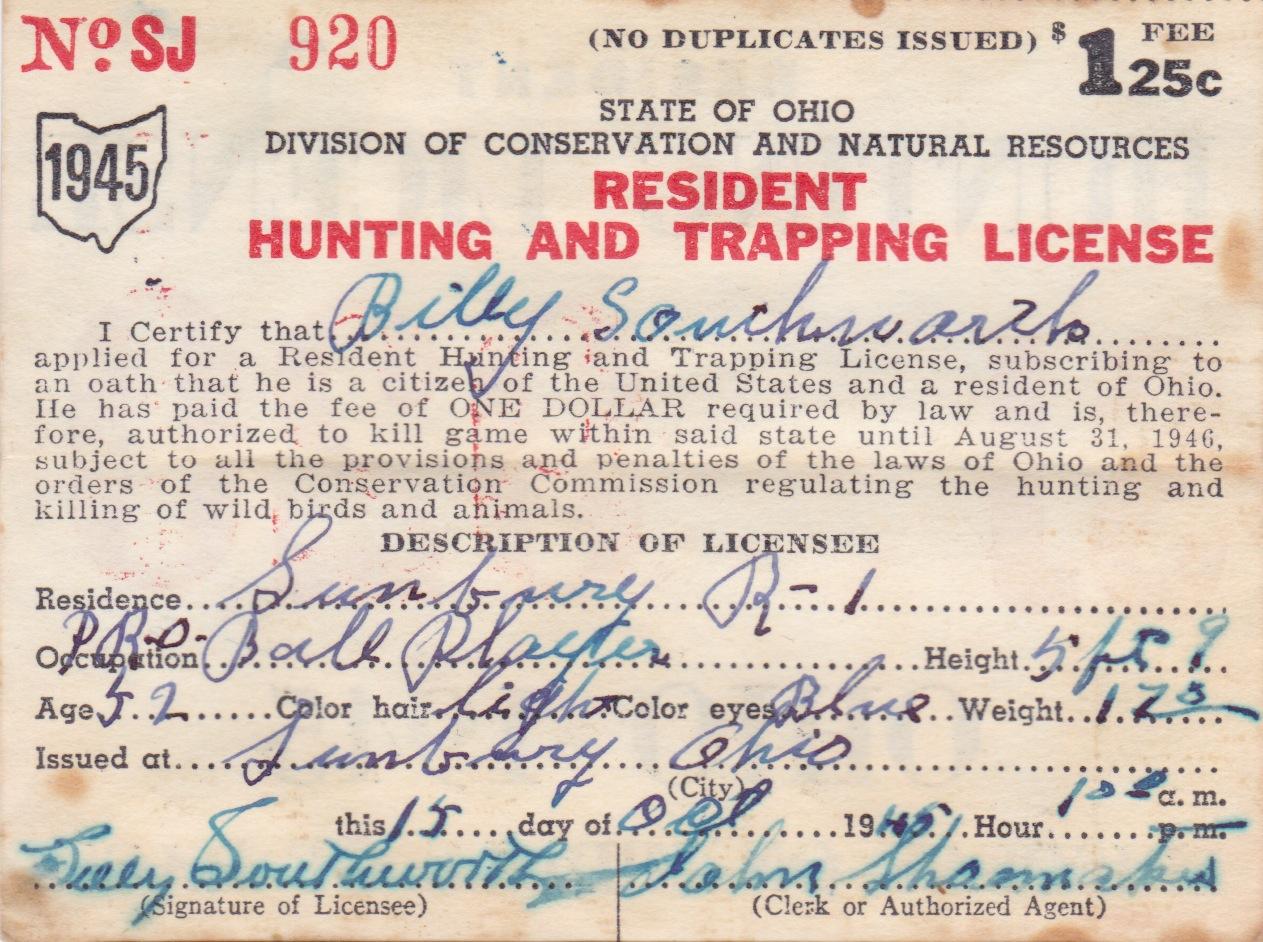 No. SJ 920 (NO DUPLICATES ISSUED) $1 25c FEE
STATE OF OHIO
1945 DIVISION OF CONSERVATION AND NATURAL RESOURCES
RESIDENT
HUNTING AND TRAPPING LICENSE
I Certify that Billy Southworth
applied for a Resident Hunting and Trapping License, subscribing to
an oath that he is a citizen of the United States and a resident of Ohio.
He has paid the fee of ONE DOLLAR required by law and is, there-
fore, authorized to kill game within said state until August 31, 1946,
subject to all the provisions and penalties of the laws of Ohio and the
orders of the Conservation Commission regulating the hunting and
killing of wild birds and animals.
DESCRIPTION OF LICENSEE
Residence Sunbury R-1
Occupation PRO- Ball Player Height 5 ft 9
Age 52 Color hair light Color eyes Blue Weight 175
Issued at Sunbury Ohio
(City)
this 15 day of Oct 1945 Hour 1 00 a. m.
p. m.
Billy Southworth John
(Signature of Licensee) (Clerk or Authorized Agent)